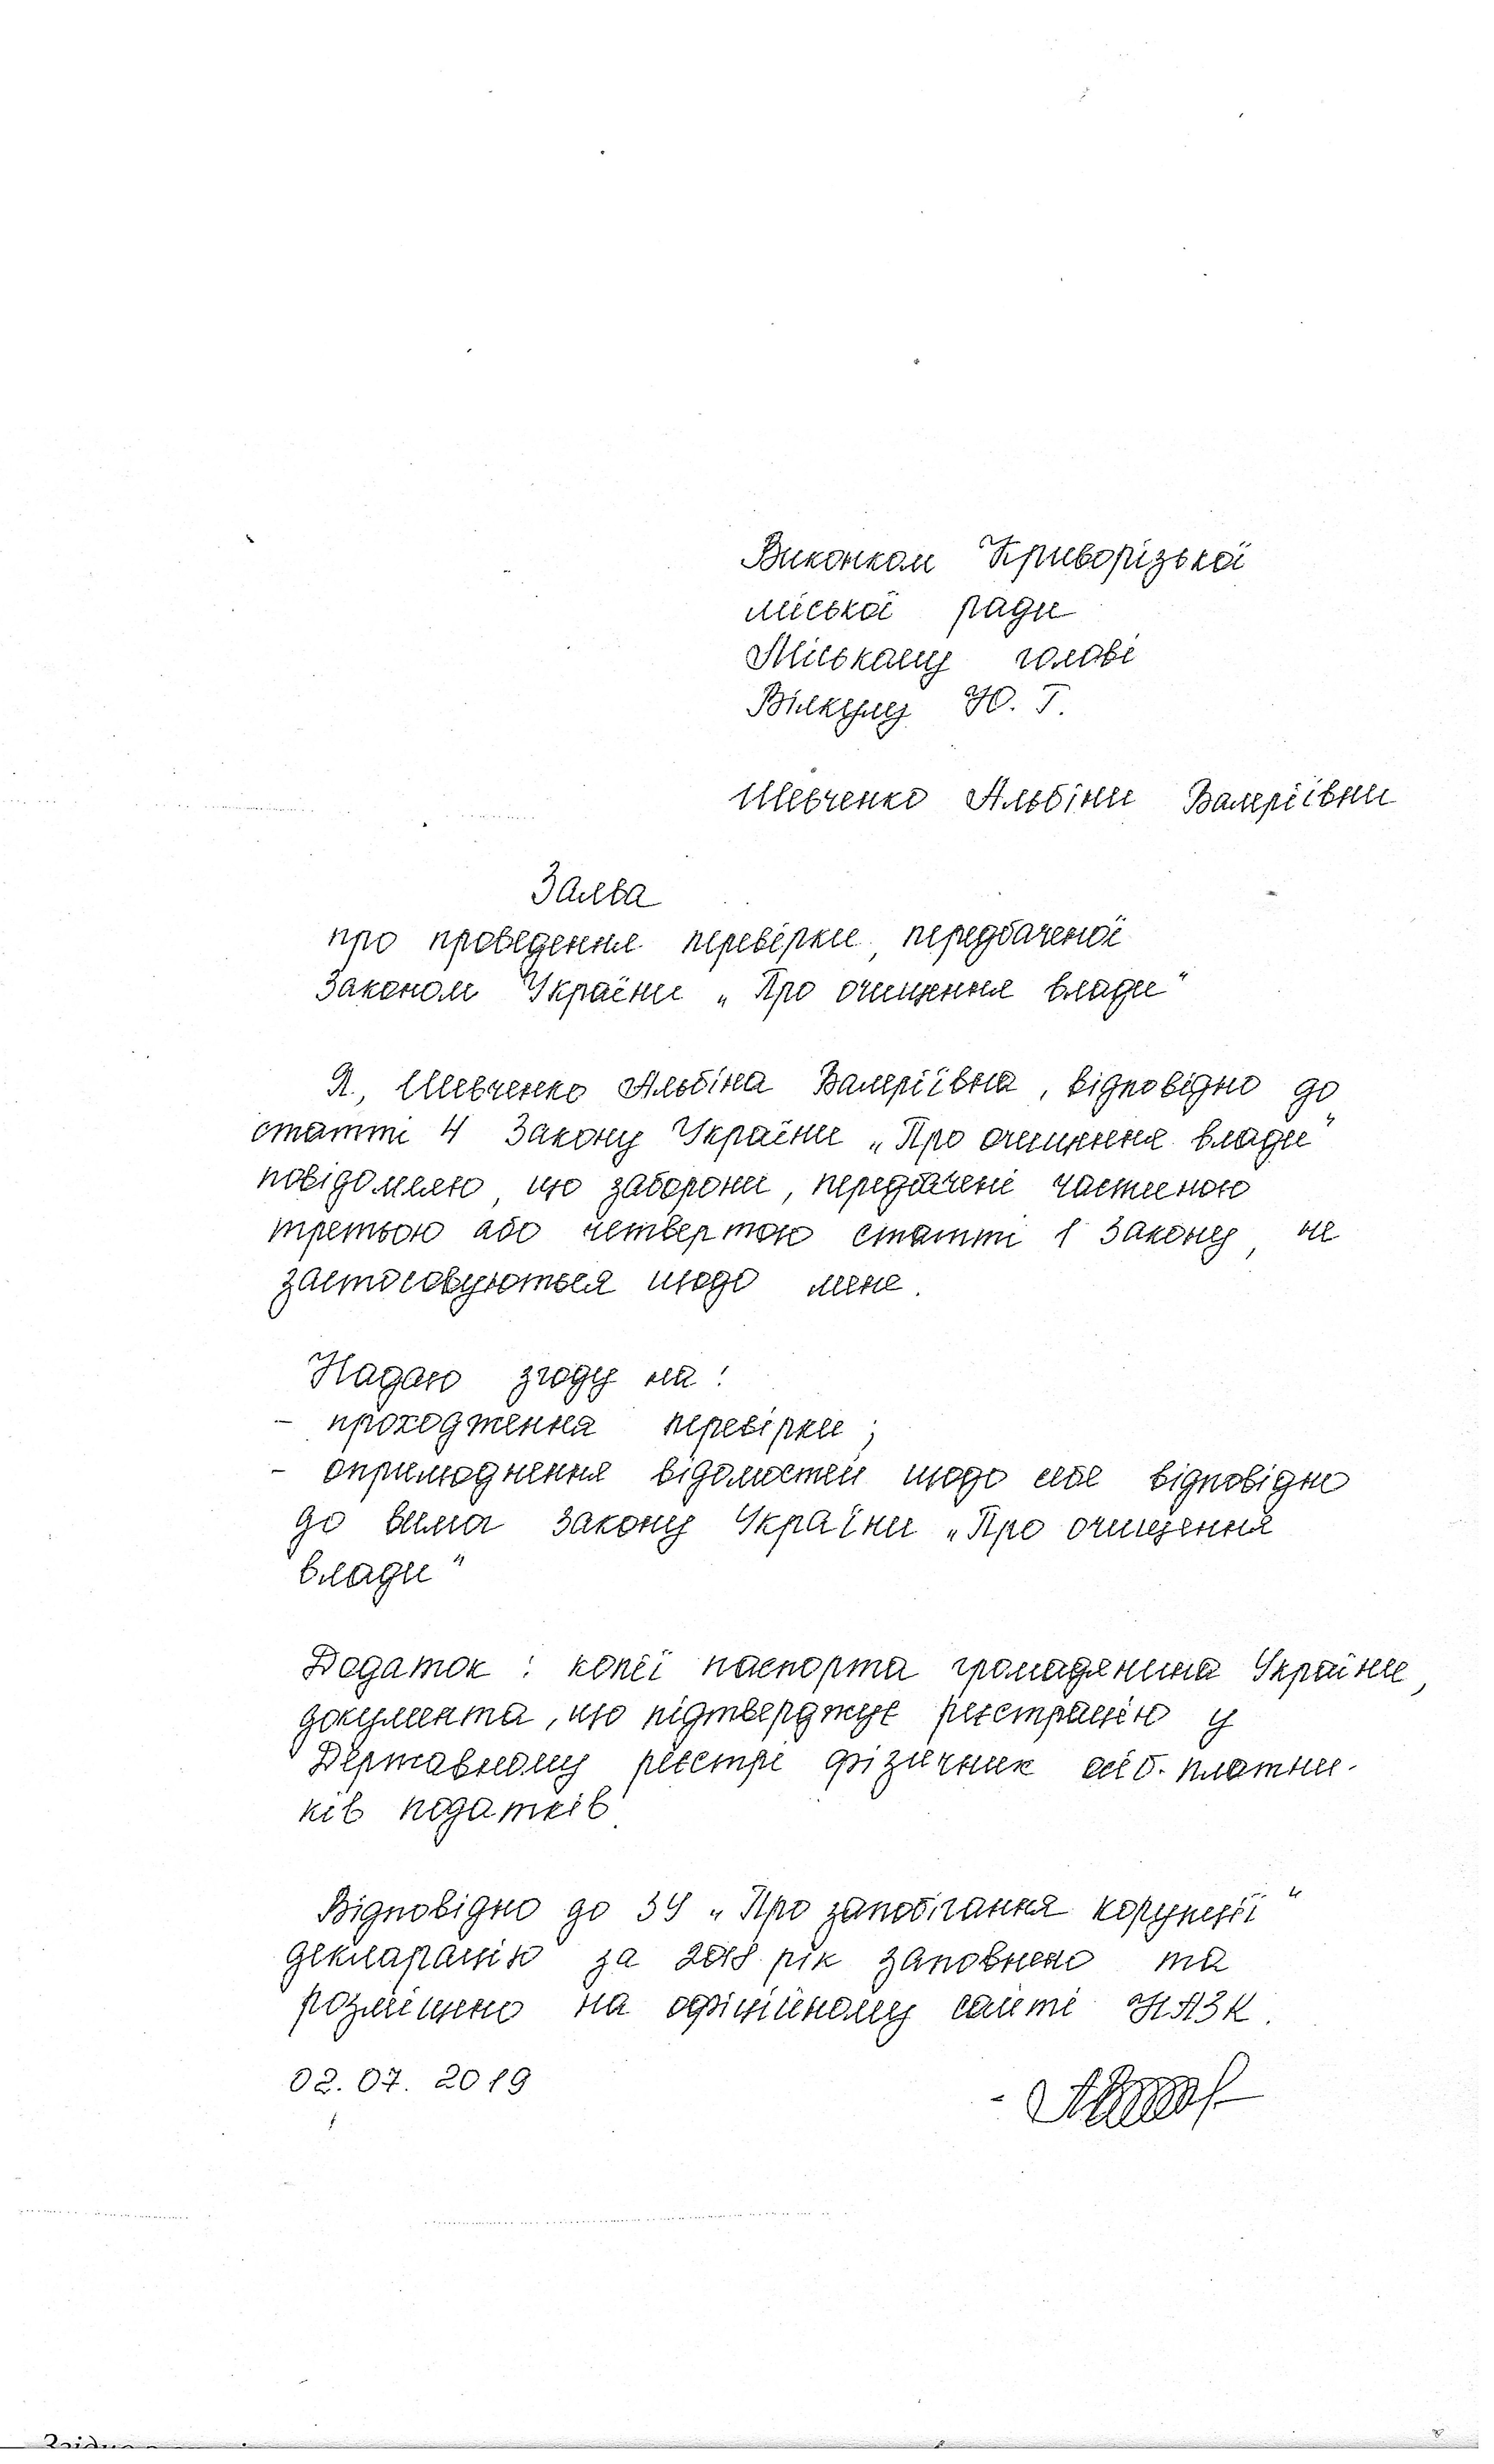 Виконком Криворізької
міської ради
Міському голові
Вілкулу Ю. Г.
Шевченко Альбіни Валеріївни
Заява
про проведення перевірки, передбаченої
Законом України „Про очищення влади"
Я, Шевченко Альбіна Валеріївна, відповідно до
статті 4 Закону України „Про очищення влади"
повідомляю, що заборони, передбачені частиною
третьою або четвертою статті 1 Закону, не
застосовуються щодо мене.
Надаю згоду на:
- проходження перевірки;
- оприлюднення відомостей щодо себе відповідно
до вимог Закону України „Про очищення
влади"
Додаток: копії паспорта громадянина України,
документа, що підтверджує реєстрацію у
Державному реєстрі фізичних осіб-платни-
ків податків.
Відповідно до ЗУ „Про запобігання корупції"
декларацію за 2018 рік заповнено та
розміщено на офіційному сайті НАЗК.
02.07.2019